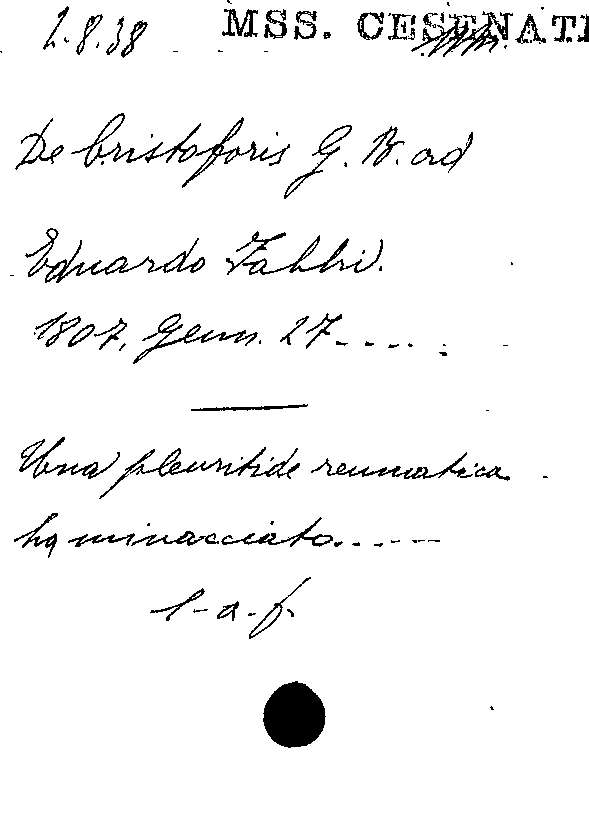 2.8.38 MSS. CESENATI
De Cristoforis G. B. ad
Eduardo Fabbri.
1807, Genn. 27.....
Una pleuritide reumatica
ha minacciato......
l-a.f.